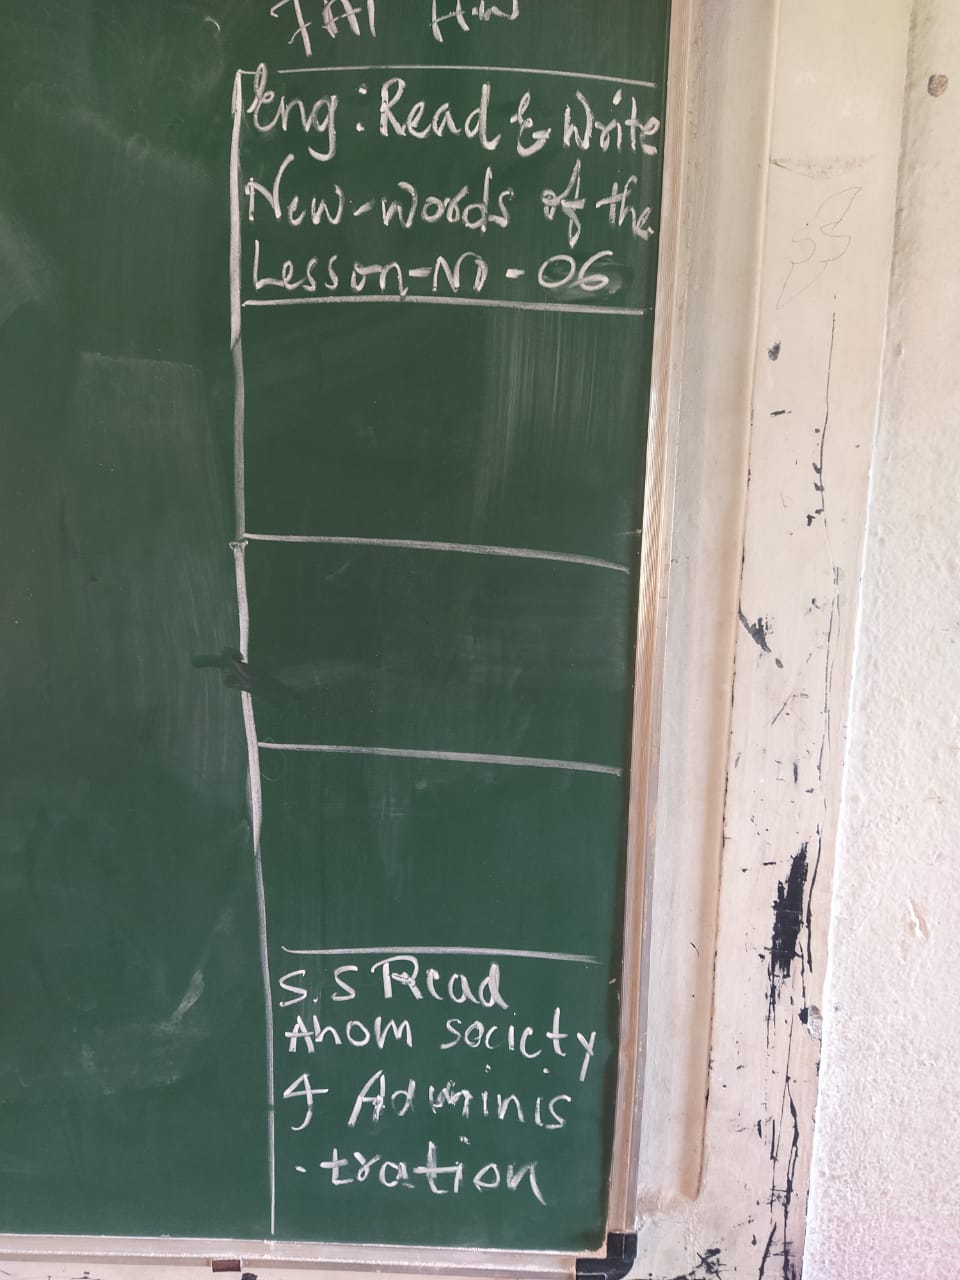 HW
Eng: Read & Write
New-words of the
Lesson-No - 06
S.S Read
Ahom society
& Adminis
-tration